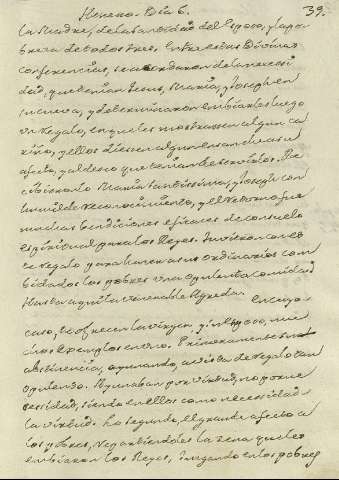 Henero. Dia 6. 39.
la Madre, de la santidad del Esposo, y la po
breza de todos tres. Entre estas Divinas
conferencias, se acordaron de la necesi
dad, que tenian Jesus, Maria, y Joseph en
su cueva, y determinaron embiarles luego
un Regalo, en que les mostrassen algun ca
riño, y ellos diessen algun ensanche a su
afecto, y al deseo que tenian de servirlos. Re
cibieronlo Maria Santissima, y Joseph con
humilde reconocimiento, y el retorno fue
muchas bendiciones eficaces de consuelo
espiritual para los Reyes. Tuvieron con es
te regalo y para hacer a sus ordinarios com
bidados los pobres una opulenta comida
Hasta aqui la venerable Agreda.
En cuyo
caso, se ofrecen la virgen, y su Esposo, mu
chos exemplos en uno. Primeramente su
abstinencia, ayunando, a vista de regalo tan
opulento. Ayunaban por virtud, no por ne
cessidad, siendo en ellos como necessidad
la virtud. Lo segundo, el grande afecto a
los pobres, repartiendoles la cena que les
embiaron los Reyes, juzgando en los pobres